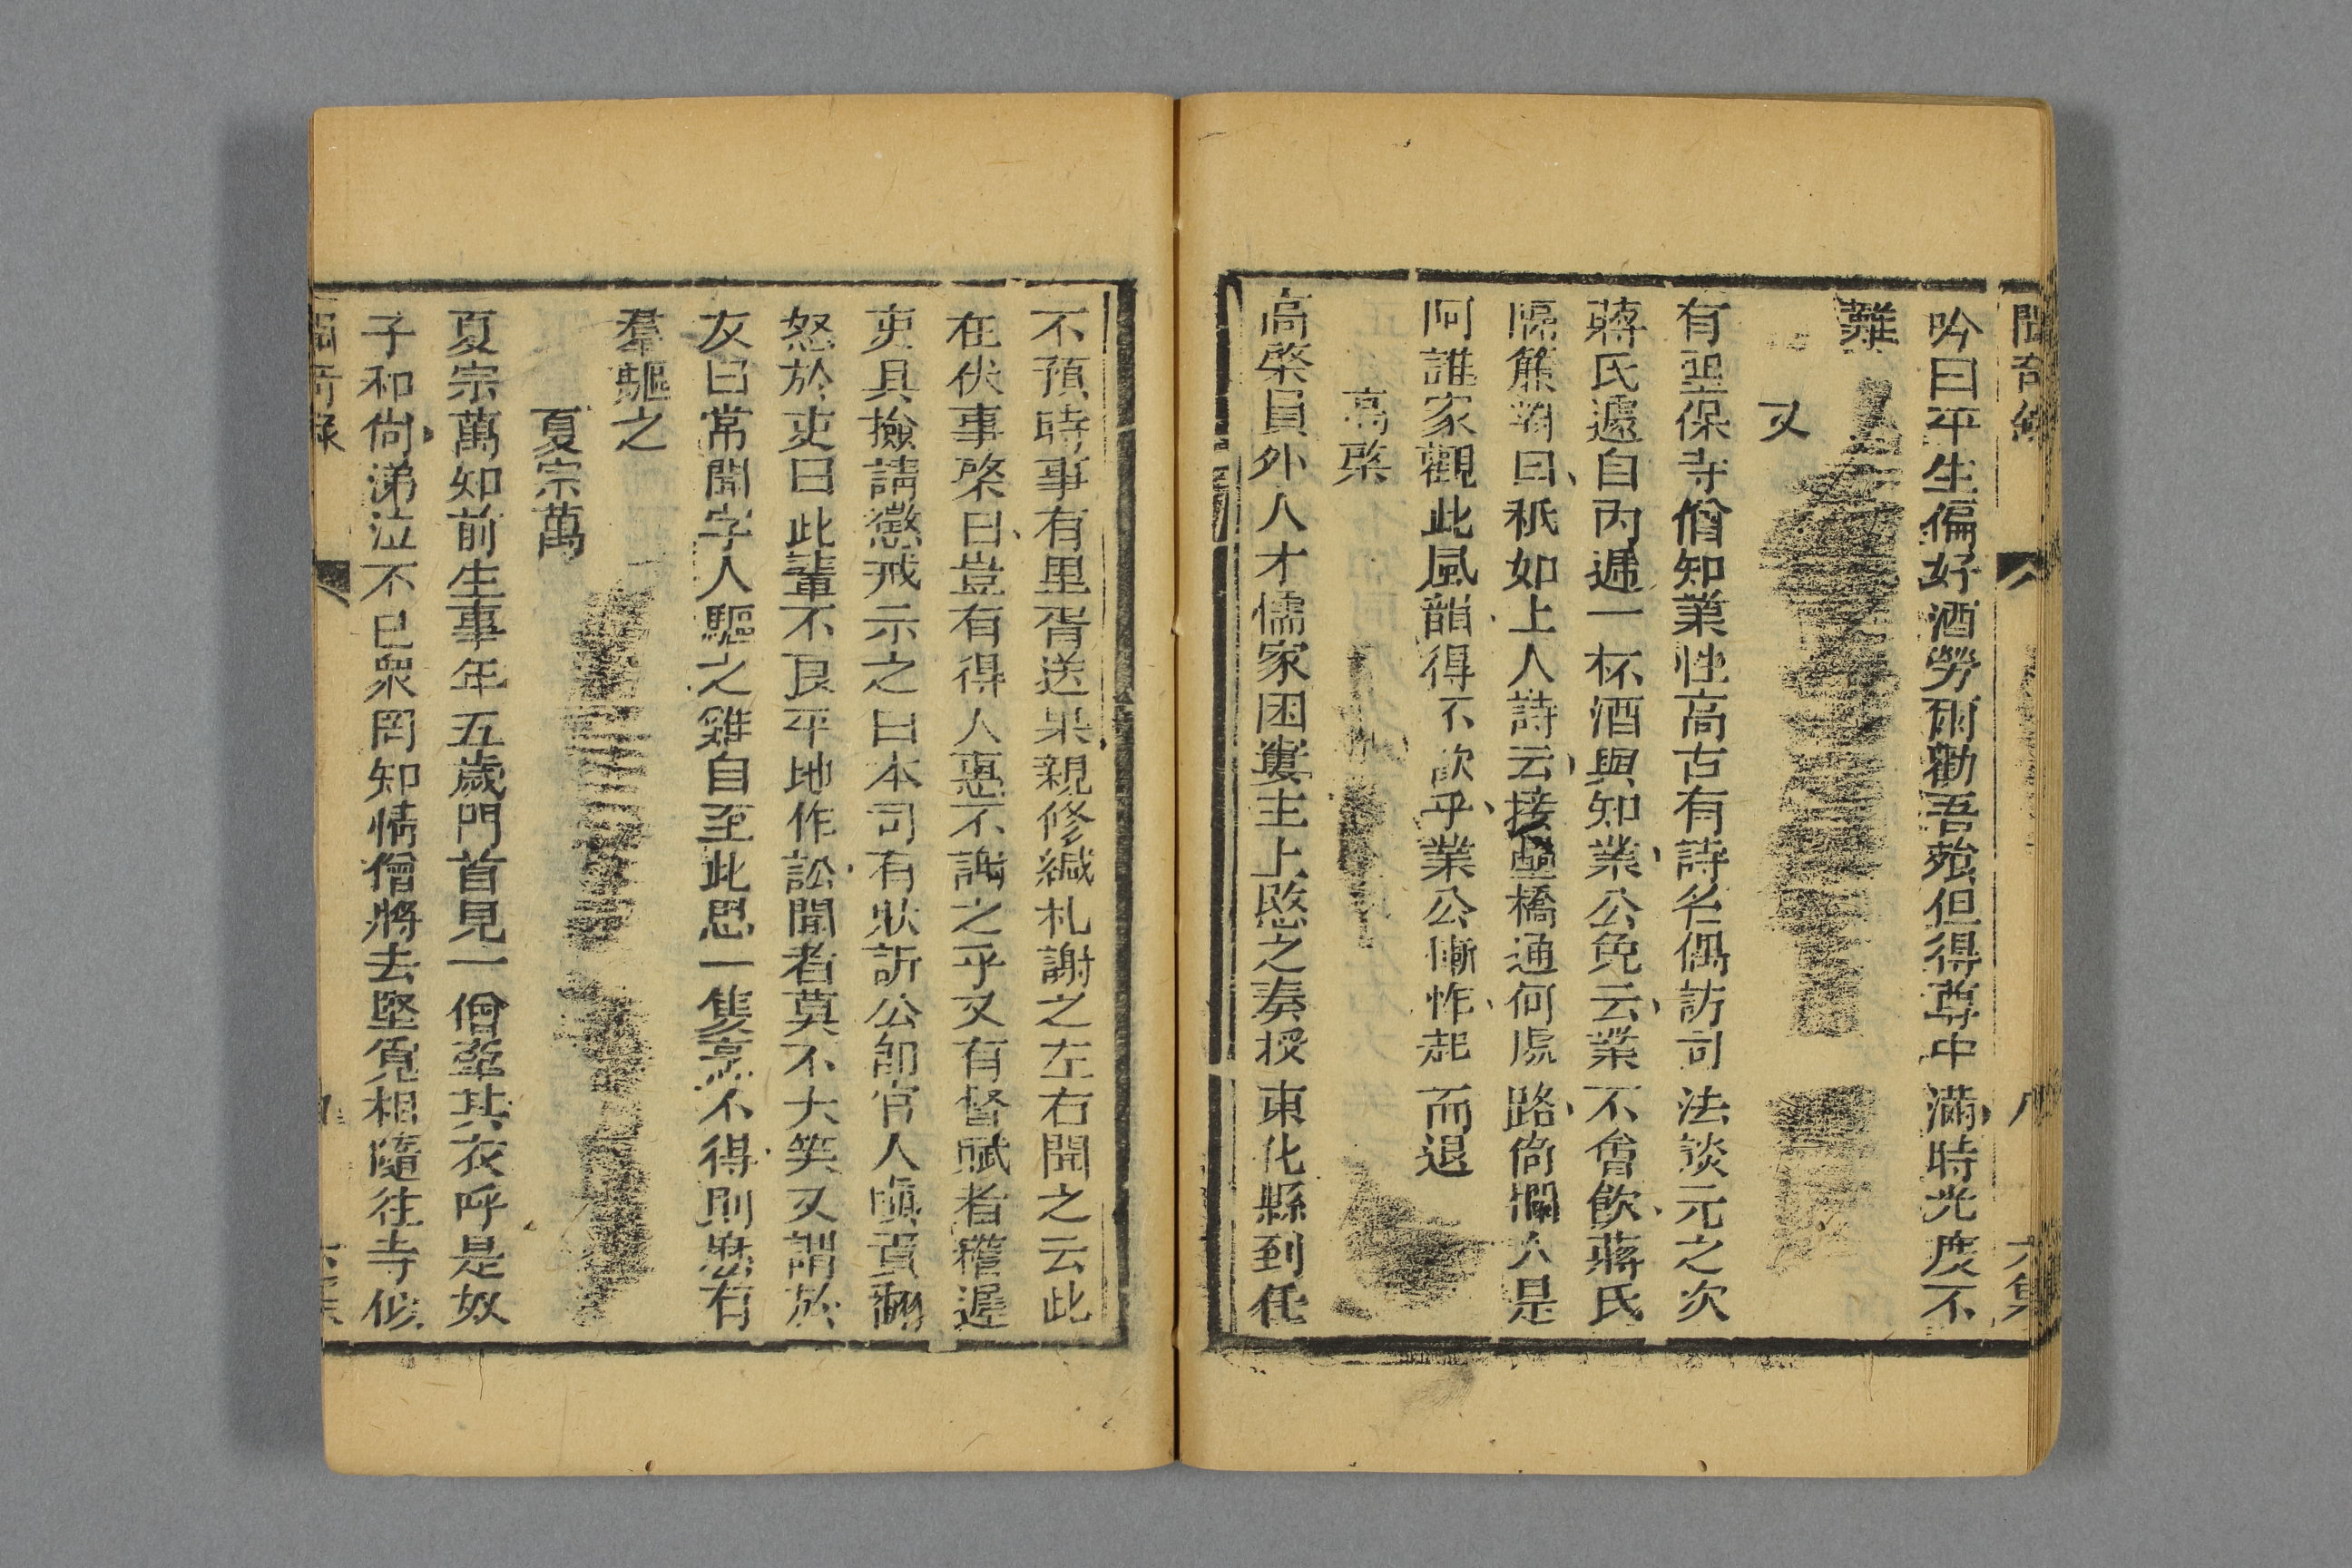 聞奇錄 八 六集
吟曰平生偏好酒勞爾勸吾飱但得尊中滿時光度不
難
又
有聖保寺僧知業性高古有詩名偶訪司法談元之次
蔣氏遽自內遞一杯酒與知業公免云業不曾飲蔣氏
隔簾對曰秪如上人詩云接壘橋通何處路倚欄人是
阿誰家觀此風韻得不飲乎業公慚怍起而退
高棨
高棨員外人才儒家困寠主上愍之奏授東化縣到任
不預時事有里胥送果親修緘札謝之左右開之云此
在伏事棨曰豈有得人惠不謝之乎又有督賦者稽遲
吏具撿請懲戒示之曰本司有狀訴公卽官人嗔責翻
怒於吏曰此輩不良平地作訟聞者莫不大笑又謂於
友曰常聞字人驅之雞自至此思一隻烹不得則愁有
羣驅之
夏宗萬
夏宗萬知前生事年五歲門首見一僧牽其衣呼是奴
子和尙涕泣不已衆罔知情僧將去堅寃相隨往寺似
聞奇錄 九 六集